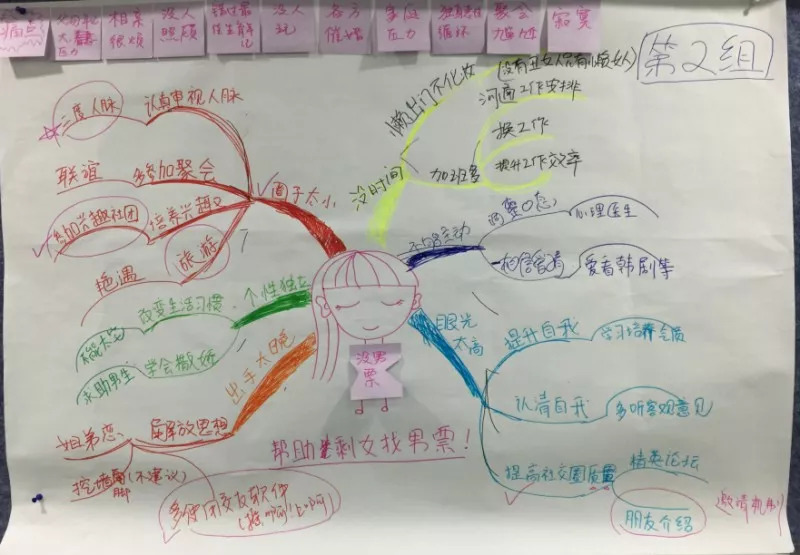 痛点
父母
压力
相亲
很烦
没人
照顾
没人
玩
各方
催婚
家庭
压力
循环
聚会
寂寞
第2组
三度人脉
认真审视人脉
联谊
多参加聚会
参加兴趣社团
培养兴趣
旅游
艳遇
圈子太小
懒,出门不化妆
(没有丑女人只有懒女人)
没时间
加班多
沟通工作安排
换工作
提升工作效率
不够主动
心理医生
相信爱情
爱看韩剧等
改变生活习惯
个性独立
求助男生
学会撒娇
出手太晚
姐弟恋
解放思想
挖墙脚(不建议)
多使用交友软件
没男
票
眼光
太高
提升自我
学习培养气质
认清自我
多听客观意见
提高社交圈质量
精英论坛
朋友介绍
邀请机制
帮助剩女找男票!